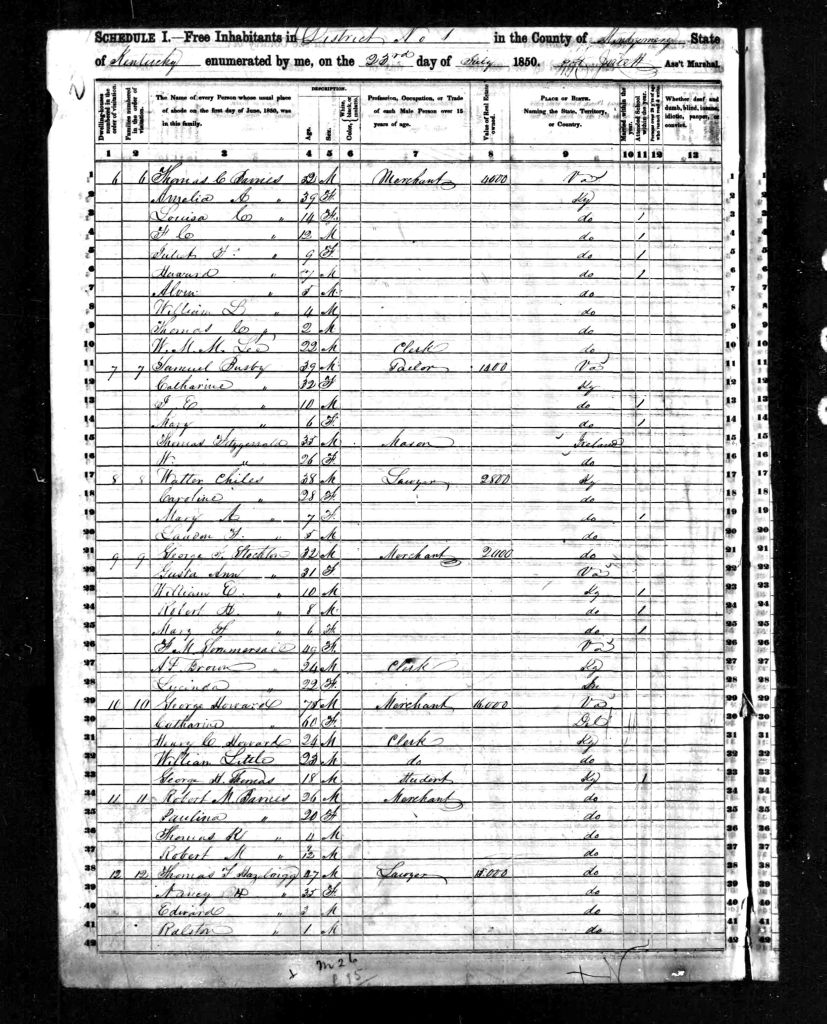 SCHEDULE I.—Free Inhabitants in District No 1 in the County of Montgomery State
of Kentucky enumerated by me, on the 23rd day of July 1850. Ass't Marshal.
Dwelling-houses numbered in the order of visitation.
Families numbered in the order of visitation.
The Name of every Person whose usual place of abode on the first day of June, 1850, was in this family.
DESCRIPTION.
Age.
Sex.
Color, White, black, or mulatto.
Profession, Occupation, or Trade of each Male Person over 15 years of age.
Value of Real Estate owned.
PLACE OF BIRTH. Naming the State, Territory, or Country.
Married within the year.
Attended School within the year.
Whether deaf and dumb, blind, insane, idiotic, pauper, or convict.
1 2 3 4 5 6 7 8 9 10 11 12 13
1 6 6 Thomas C Barnes 52 M Merchant 4000 Va 1
2 Amelia A " 39 F Ky 2
3 Louisa C " 14 F do 1 3
4 F C " 12 M do 1 4
5 Juliet F " 9 F do 1 5
6 Howard " 7 M do 1 6
7 Alvin " 5 M do 7
8 William L " 4 M do 8
9 Thomas C " 2 M do 9
10 W. M. M. Lee 22 M Clerk do 10
11 7 7 Samuel Busby 39 M Tailor Va 11
12 Catharine " 32 F Ky 12
13 " 10 M do 1 13
14 Mary " 6 F do 1 14
15 Thomas Fitzgerrald 35 M Mason Ireland 15
16 W " 26 F do 16
17 8 8 Walter Chiles 38 M Lawyer 2800 Ky 17
18 Caroline " 28 F do 18
19 Mary A " 7 F do 1 19
20 Landon " 5 M do 20
21 9 9 George Stockton 32 M Merchant 2000 do 21
22 Gusta Ann " 31 F Va 22
23 William C. " 10 M Ky 1 23
24 Robert H. " 8 M do 1 24
25 Mary F " 6 F do 1 25
26 F M Sommersall 49 F Va 26
27 A F Brown 34 M Clerk Ky 27
28 Lucinda " 22 F 28
29 10 10 George Howard 78 M Merchant 16,000 Va 29
30 Catharine " 60 F Del 30
31 Henry C Howard 24 M Clerk Ky 31
32 William Little 23 M do do 32
33 George H Thomas 18 M Student Ky 1 33
34 11 11 Robert M Barnes 26 M Merchant do 34
35 Paulina " 20 F do 35
36 Thomas K " 4 M do 36
37 Robert M " M do 37
38 12 12 Thomas F Hazelrigg 47 M Lawyer do 38
39 Nancy " 35 F do 39
40 Edward " 3 M do 40
41 Ralston " 1 M do 41
42 42
M 26